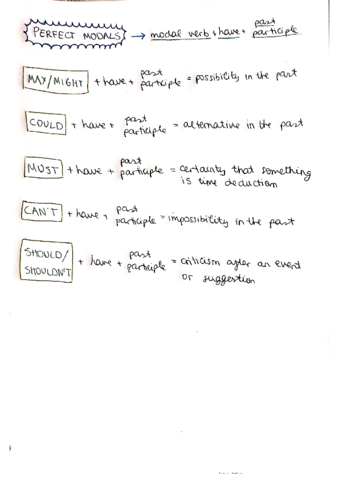 PERFECT MODALS → modal verb + have + past participle
MAY/MIGHT + have + past participle = possibility in the past
COULD + have + past participle = alternative in the past
MUST + have + past participle = certainty that something
is time deduction
CAN'T + have + past participle = impossibility in the past
SHOULD/
SHOULDN'T + have + past participle = criticism after an event
or suggestion